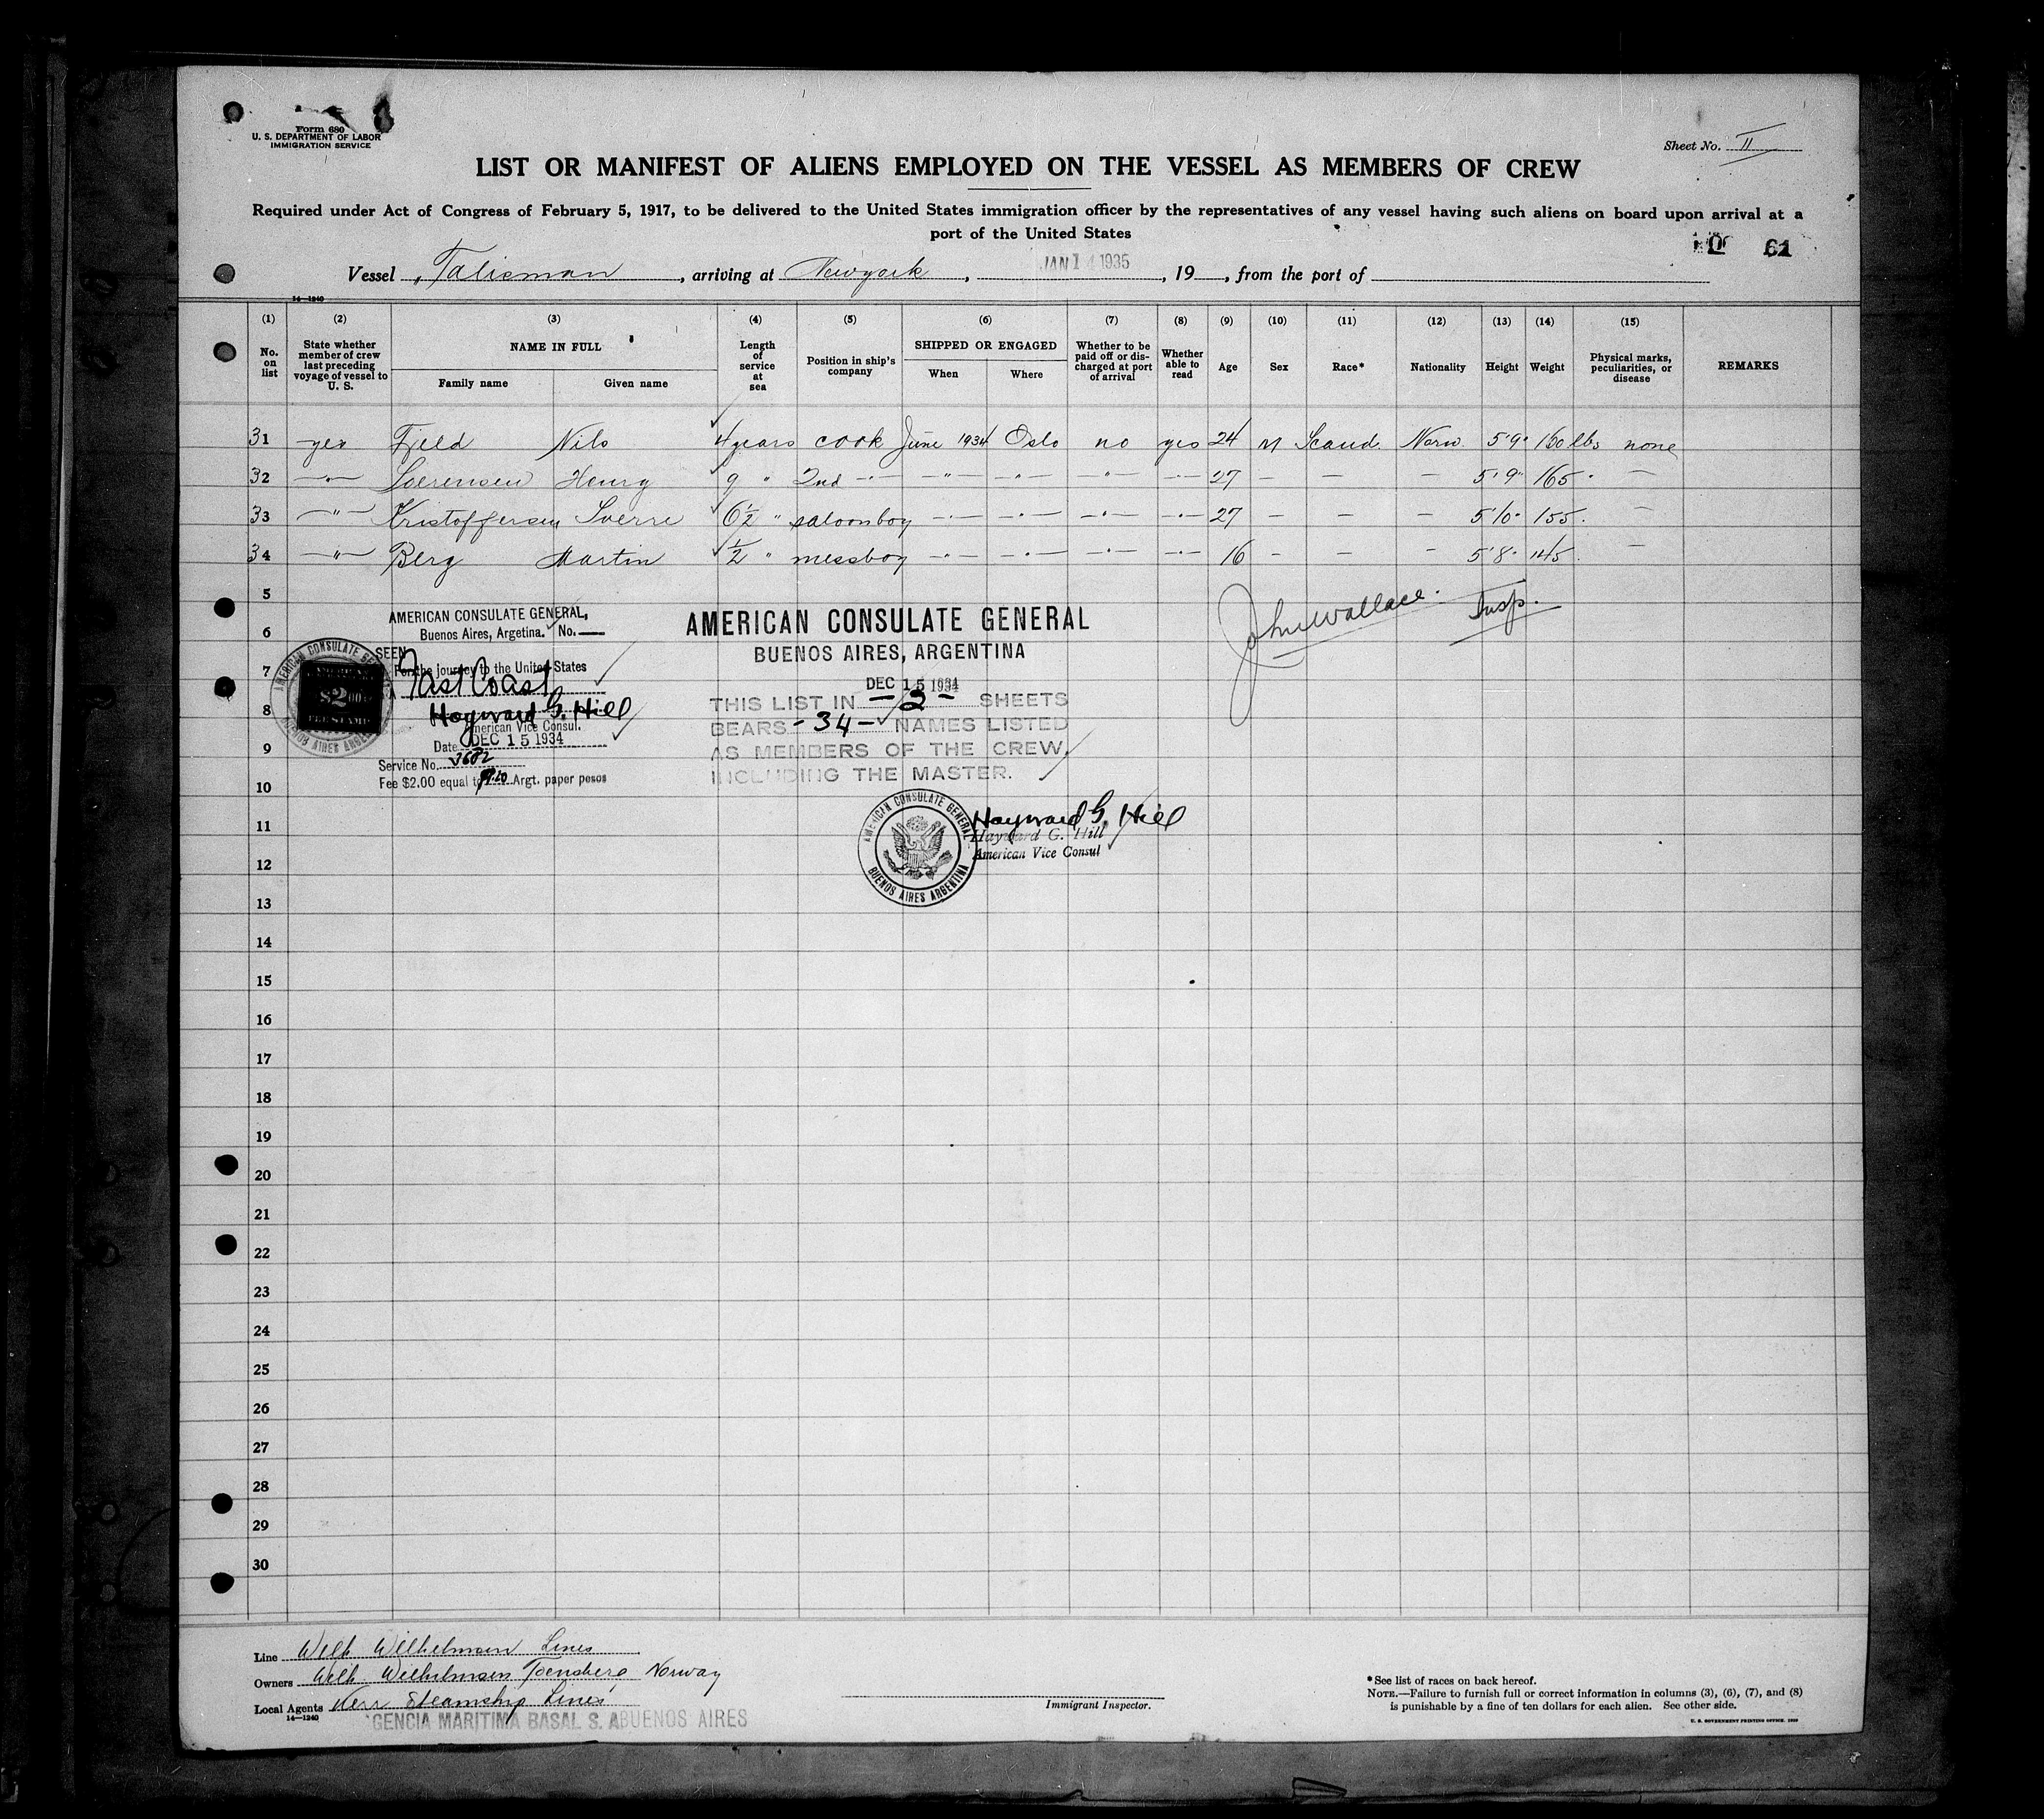 Form 680
U. S. DEPARTMENT OF LABOR
IMMIGRATION SERVICE
Sheet No. II
LIST OR MANIFEST OF ALIENS EMPLOYED ON THE VESSEL AS MEMBERS OF CREW
Required under Act of Congress of February 5, 1917, to be delivered to the United States immigration officer by the representatives of any vessel having such aliens on board upon arrival at a
port of the United States
61
Vessel Talisman, arriving at Newyork, JAN 14 1935, 19, from the port of
14—1240
(1) (2) (3) (4) (5) (6) (7) (8) (9) (10) (11) (12) (13) (14) (15)
No. on list
State whether member of crew last preceding voyage of vessel to U. S.
NAME IN FULL
Family name Given name
Length of service at sea
Position in ship's company
SHIPPED OR ENGAGED
When Where
Whether to be paid off or discharged at port of arrival
Whether able to read
Age
Sex
Race*
Nationality
Height
Weight
Physical marks, peculiarities, or disease
REMARKS
31 yes Fjeld Nils 4 years cook June 1934 Oslo no yes 24 M Scand. Norw. 5'9" 160 lbs none
32 —"— Soerensen Henry 9 " 2nd —"— —"— —"— —"— —"— 27 — — — 5'9" 165 " —
33 —"— Kristoffersen Sverre 6½ " saloonboy —"— —"— —"— —"— 27 — — — 5'10" 155 " —
34 —"— Berg Martin ½ " messboy —"— —"— —"— —"— 16 — — — 5'8" 145 " —
John Wallace. Insp.
AMERICAN CONSULATE GENERAL,
Buenos Aires, Argetina. No. —
SEEN
For the journey to the United States
East Coast
Hayward G. Hill
American Vice Consul.
Date DEC 15 1934
Service No. 3682
Fee $2.00 equal to Argt. paper pesos
AMERICAN CONSULATE GENERAL
BUENOS AIRES ARGENTINA
$2.00
FEE STAMP
AMERICAN CONSULATE GENERAL
BUENOS AIRES, ARGENTINA
DEC 15 1934
THIS LIST IN —2— SHEETS
BEARS -34- NAMES LISTED
AS MEMBERS OF THE CREW,
INCLUDING THE MASTER.
AMERICAN CONSULATE GENERAL
BUENOS AIRES ARGENTINA
Hayward G. Hill
Hayward G. Hill
American Vice Consul
5
6
7
8
9
10
11
12
13
14
15
16
17
18
19
20
21
22
23
24
25
26
27
28
29
30
Line Wilh Wilhelmsen Lines
Owners Wilh. Wilhelmsen Toensberg, Norway
Local Agents Kerr Steamship Lines
14—1240
GENCIA MARITIMA BASAL S. A. BUENOS AIRES
Immigrant Inspector.
*See list of races on back hereof.
NOTE.—Failure to furnish full or correct information in columns (3), (6), (7), and (8)
is punishable by a fine of ten dollars for each alien. See other side.
U. S. GOVERNMENT PRINTING OFFICE